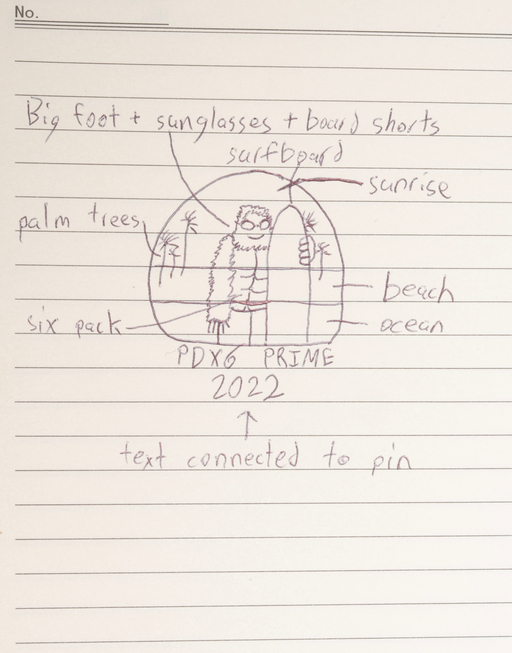 No.
Big foot + sunglasses + board shorts
surfboard
sunrise
palm trees
beach
six pack
ocean
PDX6 PRIME
2022
text connected to pin